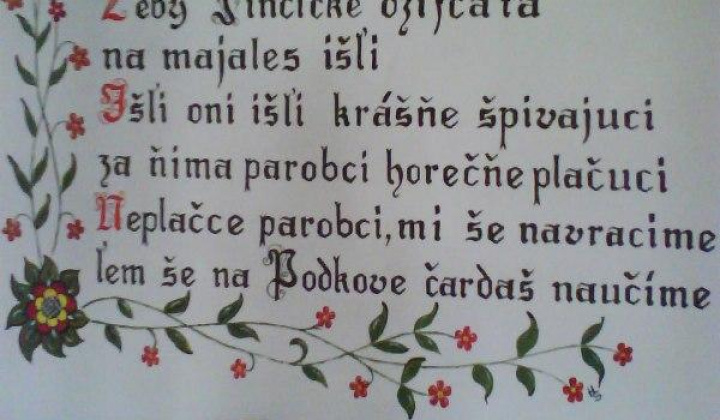 Žeby Pinčičke dzifčata
na majales išľi
Išľi oni išľi krášňe špivajuci
za ňima parobci horečňe plačuci
Neplačce parobci, mi še navracime
ľem še na Podkove čardaš naučíme